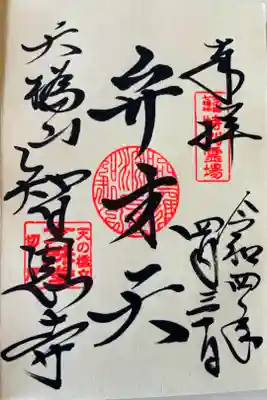 奉拝
令和四年
四月三十日
弁才天
天橋山智恩寺
霊場
天の橋立